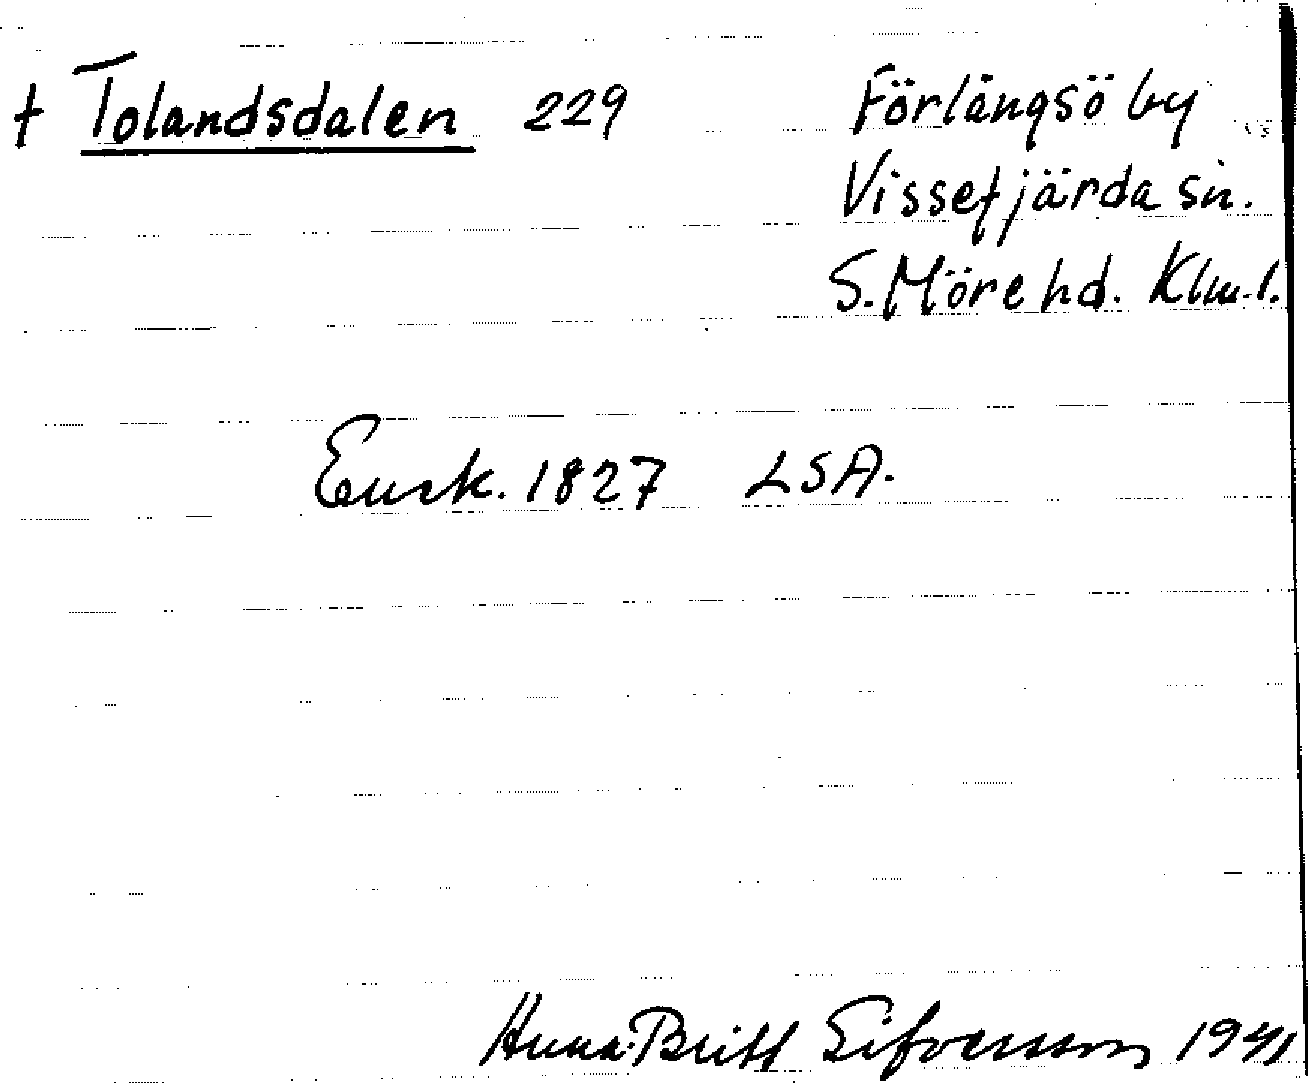 † Tolandsdalen 229 Förlängsö by
Vissefjärda sn.
S. Möre hd. Klm. l.
Ensk. 1827 LSA.
Anna-Britt Sifversson 1941